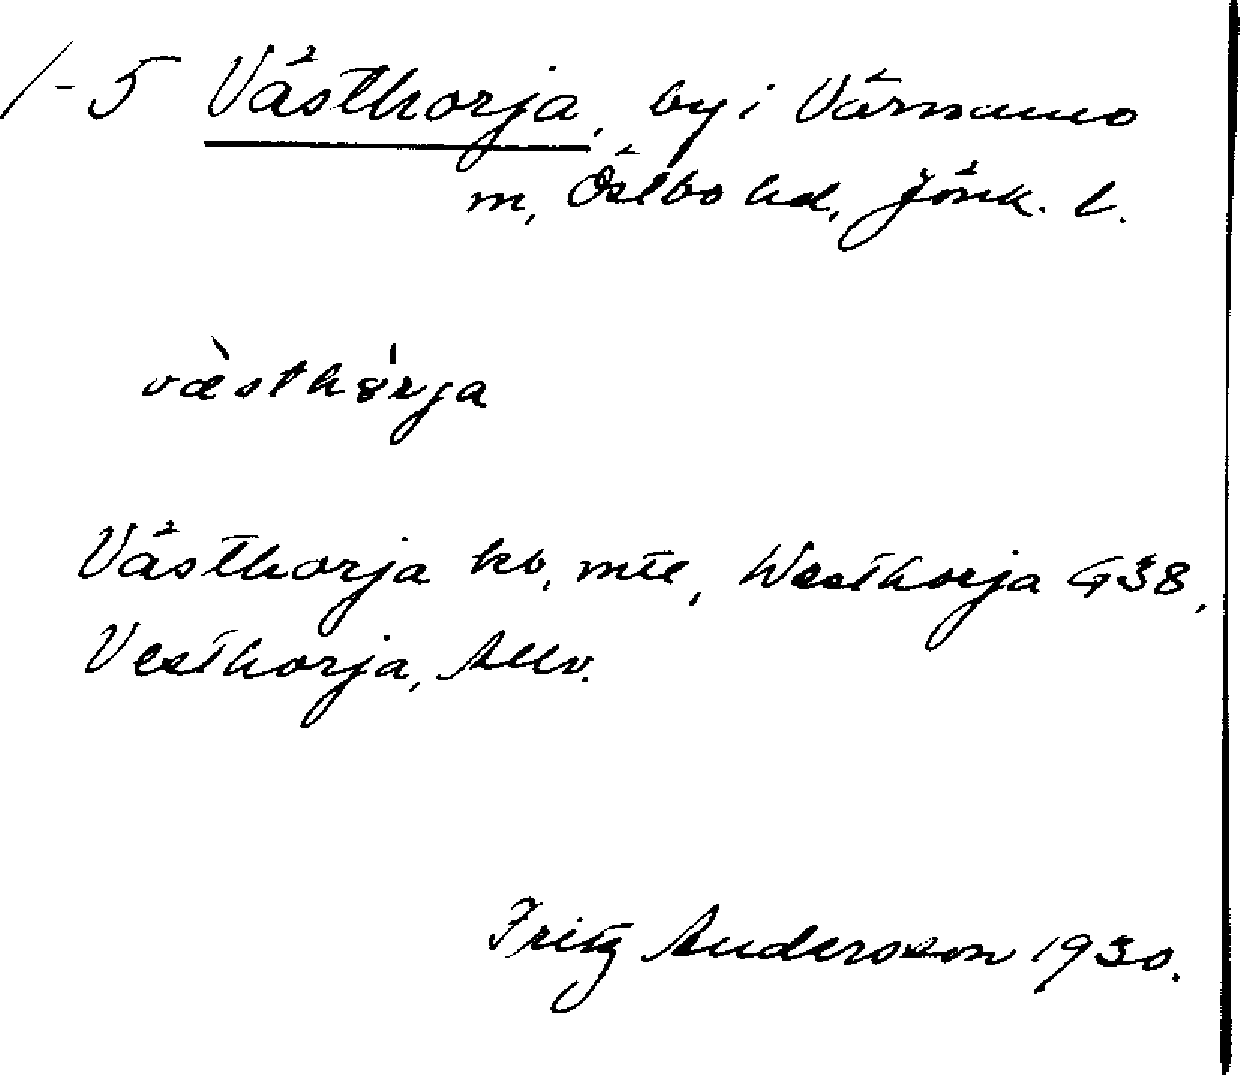 1-5 Västhorja, by i Värnamo
m, Östbo hd, Jönk. l.
væ̀sthȣ́rja
Västhorja kb, mtl, Westhorja G38,
Vesthorja, Allv.
Fritz Andersson 1930.